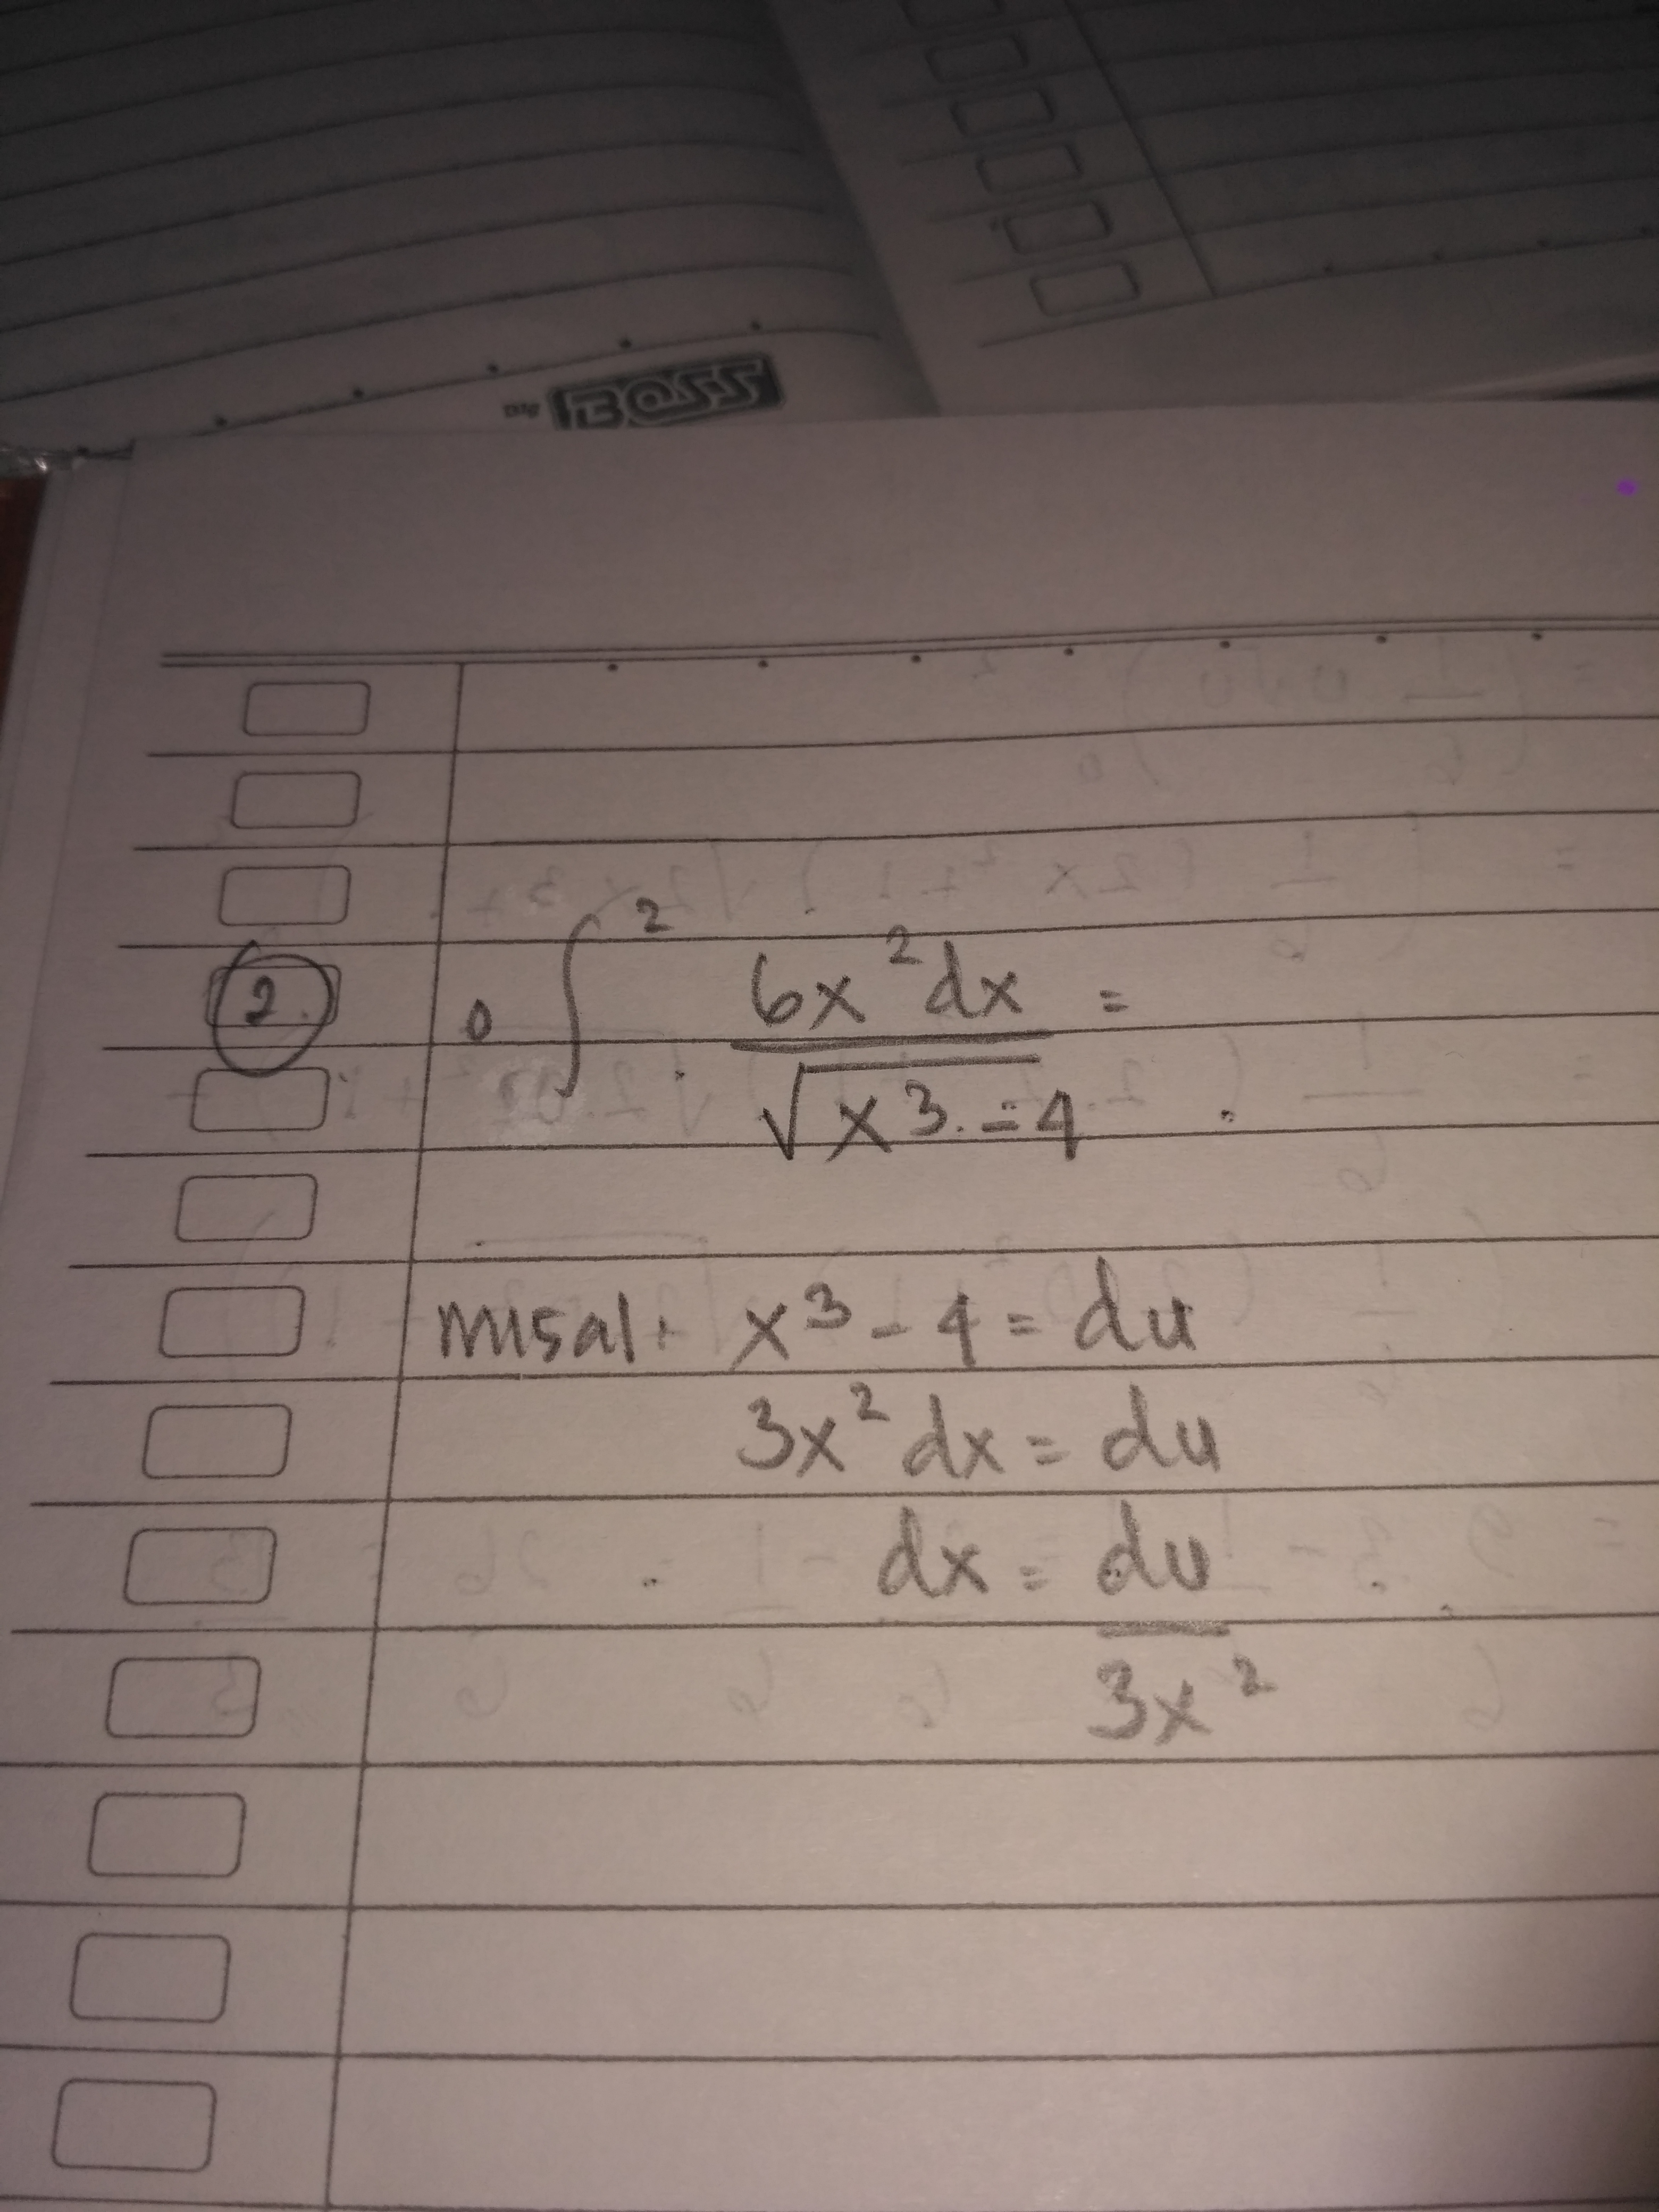 BOSS
2. 0∫² 6x² dx =
√x³ - 4
misal: x³ - 4 = du
3x² dx = du
dx = du
3x²